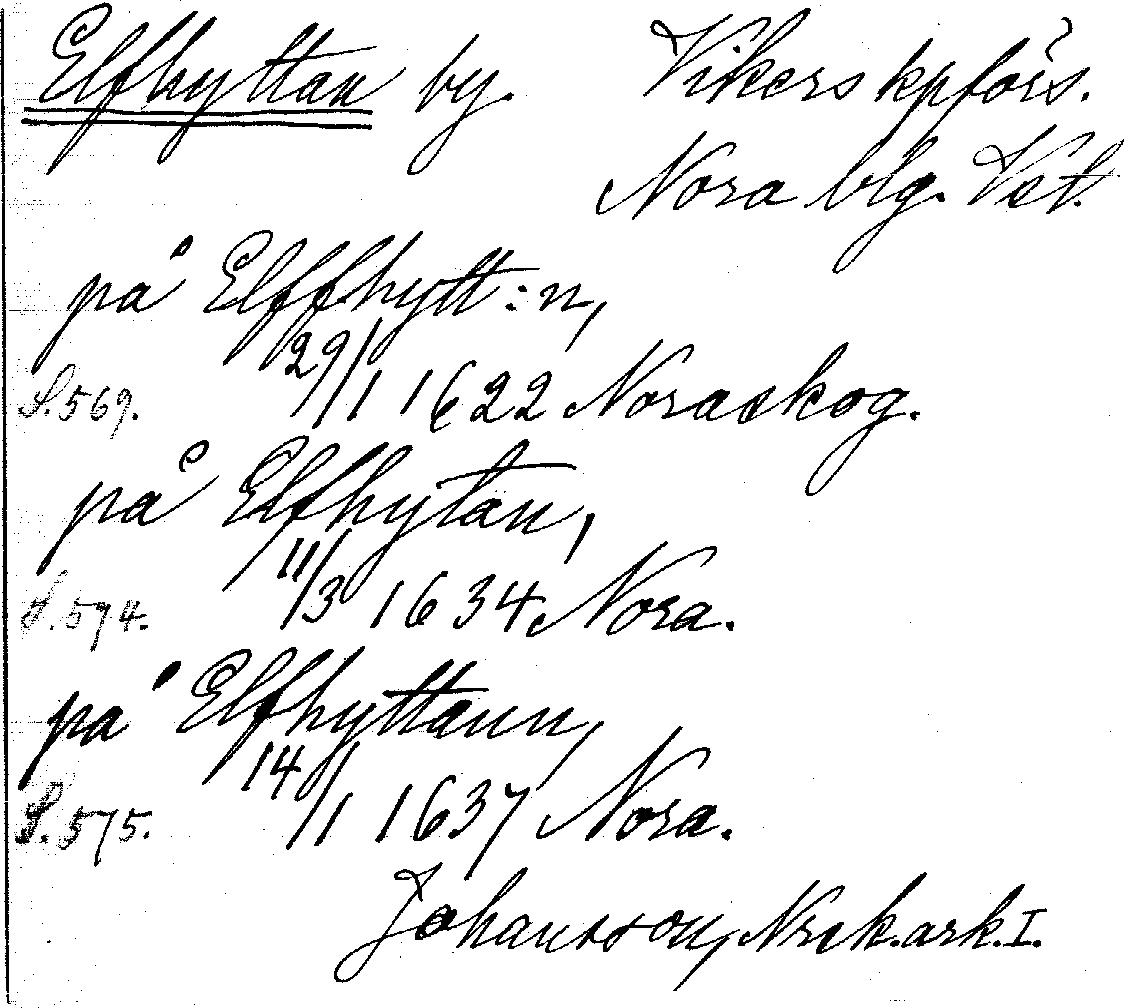 Elfhyttan by. Vikers kpförs.
Nora blg. Vst.
på Elffhytt:n,
S.569. 29/1 1622 Noraskog.
på Elfhytan,
S.574. 11/3 1634 Nora.
på Elfhyttann,
S.575. 14/1 1637 Nora.
Johansson, Nrsk.ark.I.